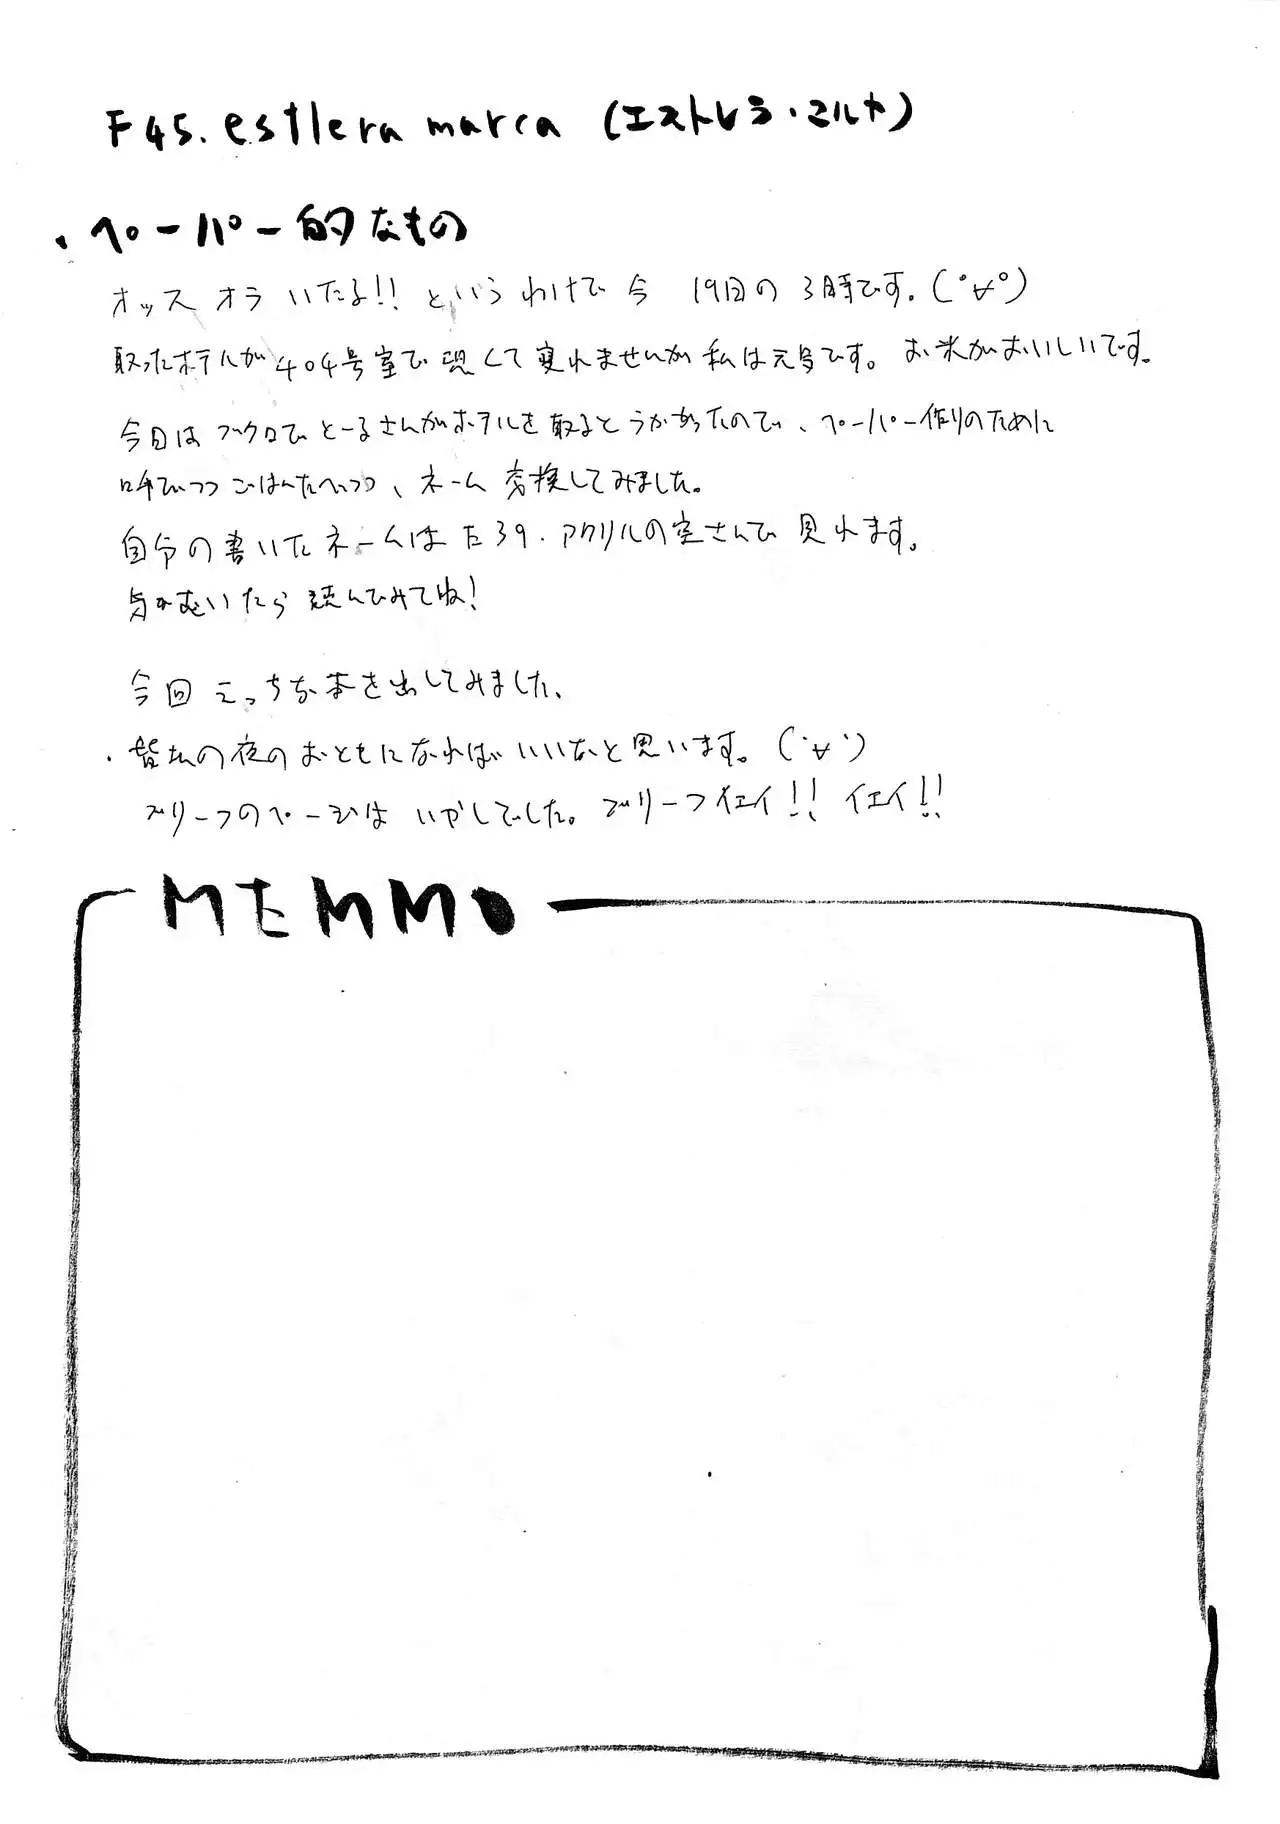 F45. estlera marca (エストレラ・マルカ)
・ペーパー的なもの
オッス オラ いたる!! というわけで 今 19日の 3時です。(゜∀゜)
取ったホテルが 404号室で 恐くて寝れませんが 私は元気です。 お米がおいしいです。
今日は ブクロで とーるさんがホテルを 取るとうかがったので、ペーパー作りのために
呼びつつ ごはんたべつつ、ネーム 交換してみました。
自分の書いたネームは た39. アクリルの室さんで 見れます。
気がむいたら 読んでみてね!
今回 えっちな本を出してみました、
・皆さんの夜のおともになればいいなと思います。(`∀´)
ブリーフのページは いかしてでした。ブリーフイエイ!! イエイ!!
MEMMO